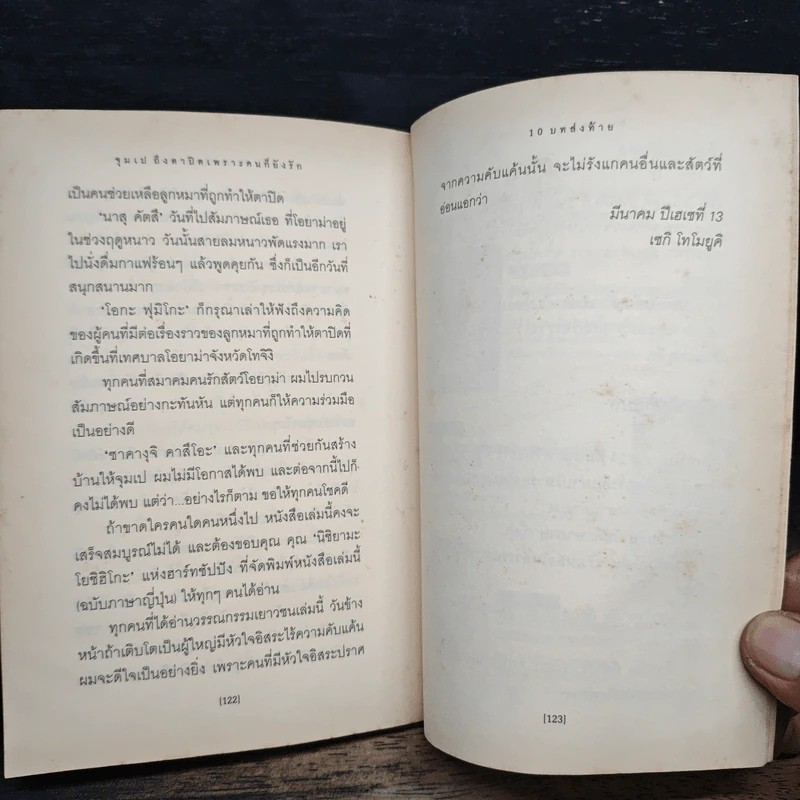 จุมเป ถึงตาปิดเพราะคนก็ยังรัก
เป็นคนช่วยเหลือลูกหมาที่ถูกทำให้ตาปิด
'นาสุ คัตสึ' วันที่ไปสัมภาษณ์เธอ ที่โอยาม่าอยู่
ในช่วงฤดูหนาว วันนั้นสายลมหนาวพัดแรงมาก เรา
ไปนั่งดื่มกาแฟร้อนๆ แล้วพูดคุยกัน ซึ่งก็เป็นอีกวันที่
สนุกสนานมาก
'โอกะ ฟุมิโกะ' ก็กรุณาเล่าให้ฟังถึงความคิด
ของผู้คนที่มีต่อเรื่องราวของลูกหมาที่ถูกทำให้ตาปิดที่
เกิดขึ้นที่เทศบาลโอยาม่าจังหวัดโทจิงิ
ทุกคนที่สมาคมคนรักสัตว์โอยาม่า ผมไปรบกวน
สัมภาษณ์อย่างกะทันหัน แต่ทุกคนก็ให้ความร่วมมือ
เป็นอย่างดี
'ซาคางุจิ คาสึโอะ' และทุกคนที่ช่วยกันสร้าง
บ้านให้จุมเป ผมไม่มีโอกาสได้พบ และต่อจากนี้ไปก็
คงไม่ได้พบ แต่ว่า...อย่างไรก็ตาม ขอให้ทุกคนโชคดี
ถ้าขาดใครคนใดคนหนึ่งไป หนังสือเล่มนี้คงจะ
เสร็จสมบูรณ์ไม่ได้ และต้องขอบคุณ คุณ 'นิชิยามะ
โยชิฮิโกะ' แห่งฮาร์ทชัปปัง ที่จัดพิมพ์หนังสือเล่มนี้
(ฉบับภาษาญี่ปุ่น) ให้ทุกๆ คนได้อ่าน
ทุกคนที่ได้อ่านวรรณกรรมเยาวชนเล่มนี้ วันข้าง
หน้าถ้าเติบโตเป็นผู้ใหญ่มีหัวใจอิสระไร้ความคับแค้น
ผมจะดีใจเป็นอย่างยิ่ง เพราะคนที่มีหัวใจอิสระปราศ
[122]
10 บทส่งท้าย
จากความคับแค้นนั้น จะไม่รังแกคนอื่นและสัตว์ที่
อ่อนแอกว่า
มีนาคม ปีเฮเซที่ 13
เซกิ โทโมยูคิ
[123]